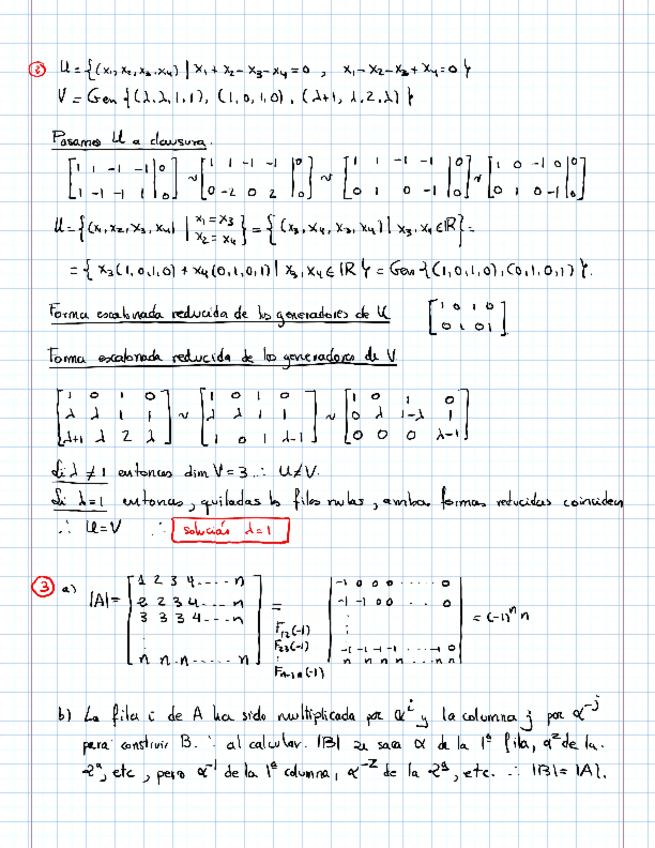 ② U = {(x₁, x₂, x₃, x₄) | x₁ + x₂ - x₃ - x₄ = 0 , x₁ - x₂ - x₃ + x₄ = 0 }
V = Gen {(λ, λ, 1, 1), (1, 0, 1, 0), (λ+1, λ, 2, λ) }
Pasamos U a clausura.
[1 1 -1 -1 | 0; 1 -1 -1 1 | 0] ~ [1 1 -1 -1 | 0; 0 -2 0 2 | 0] ~ [1 1 -1 -1 | 0; 0 1 0 -1 | 0] ~ [1 0 -1 0 | 0; 0 1 0 -1 | 0]
U = {(x₁, x₂, x₃, x₄) | x₁ = x₃ x₂ = x₄ } = {(x₃, x₄, x₃, x₄) | x₃, x₄ ∈ ℝ} =
= { x₃(1, 0, 1, 0) + x₄(0, 1, 0, 1) | x₃, x₄ ∈ ℝ } = Gen {(1, 0, 1, 0), (0, 1, 0, 1) }.
Forma escalonada reducida de los generadores de U [1 0 1 0; 0 1 0 1]
Forma escalonada reducida de los generadores de V
[1 0 1 0; λ λ 1 1; λ+1 λ 2 λ] ~ [1 0 1 0; λ λ 1 1; 1 0 1 λ-1] ~ [1 0 1 0; 0 λ 1-λ 1; 0 0 0 λ-1]
Si λ ≠ 1 entonces dim V = 3 ∴ U ≠ V.
Si λ = 1 entonces, quitadas las filas nulas, ambas formas reducidas coinciden
∴ U = V ∴ solución λ = 1
③ a) |A| = [1 2 3 4 ---- n; 2 2 3 4 ---- n; 3 3 3 4 ---- n; ⋮; n n n ----- n] = F₁₂(-1) F₂₃(-1) ⋮ Fₙ₋₁ₙ(-1) |-1 0 0 0 ..... 0; -1 -1 0 0 ... 0; ⋮; -1 -1 -1 -1 ... -1 0; n n n n ... n n| = (-1)ⁿ n
b) La fila i de A ha sido multiplicada por αⁱ y la columna j por α⁻ʲ
para construir B. ∴ al calcular |B| se saca α de la 1ª fila, α² de la
2ª, etc, pero α⁻¹ de la 1ª columna, α⁻² de la 2ª, etc. ∴ |B| = |A|.